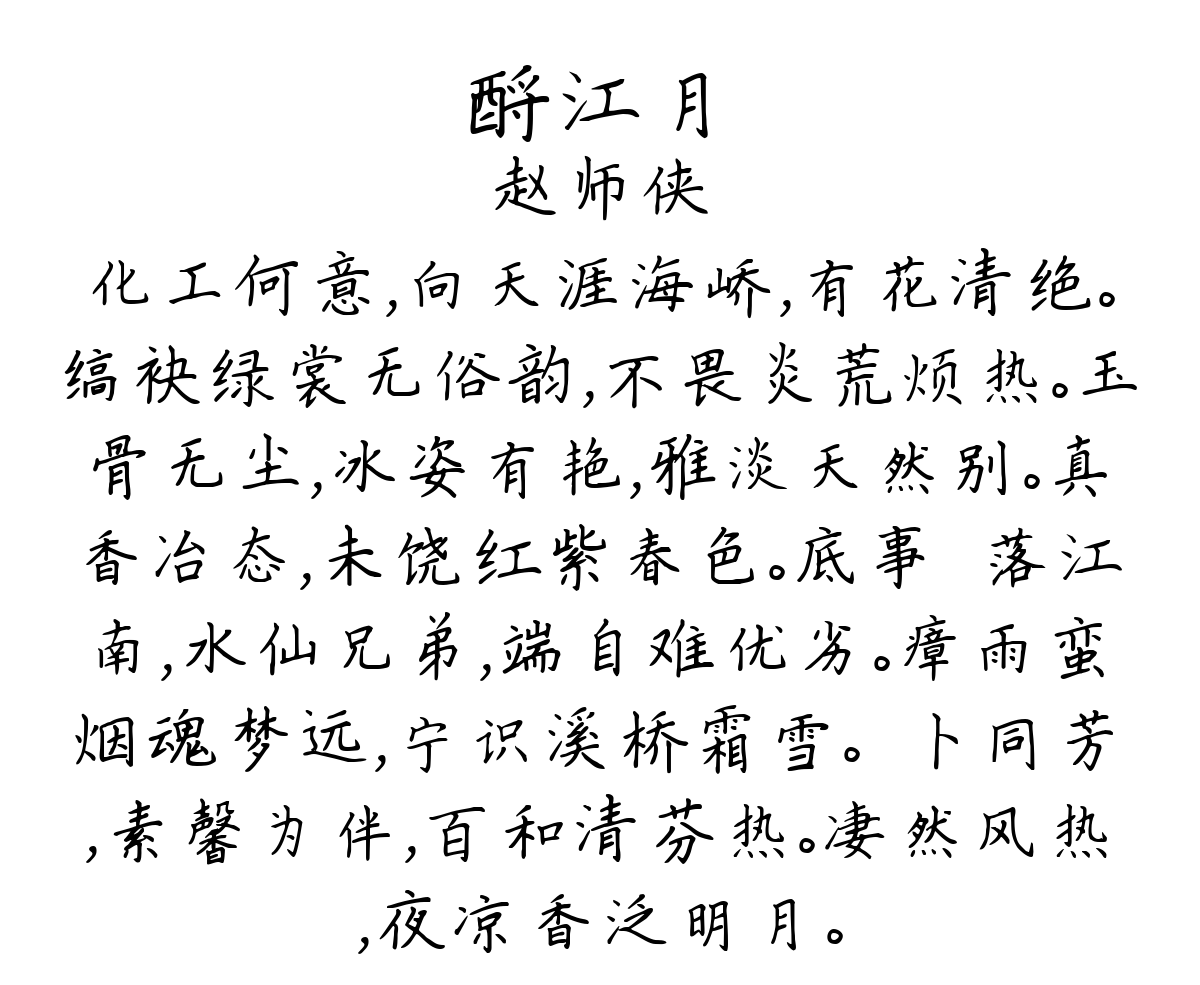 酹江月
赵师侠
化工何意,向天涯海峤,有花清绝。
缟袂绿裳无俗韵,不畏炎荒烦热。玉
骨无尘,冰姿有艳,雅淡天然别。真
香冶态,未饶红紫春色。底事 落江
南,水仙兄弟,端自难优劣。瘴雨蛮
烟魂梦远,宁识溪桥霜雪。 卜同芳
,素馨为伴,百和清芬热。凄然风热
,夜凉香泛明月。